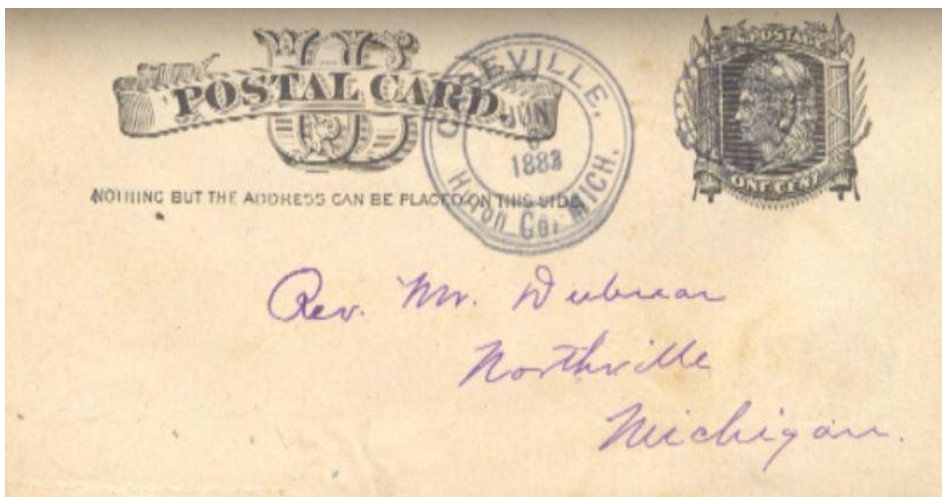 US
POSTAL CARD.
NOTHING BUT THE ADDRESS CAN BE PLACED ON THIS SIDE.
JUN
1883
Huron Co. MICH.
POSTAGE
ONE CENT
Rev. Mr.
Northville
Michigan.